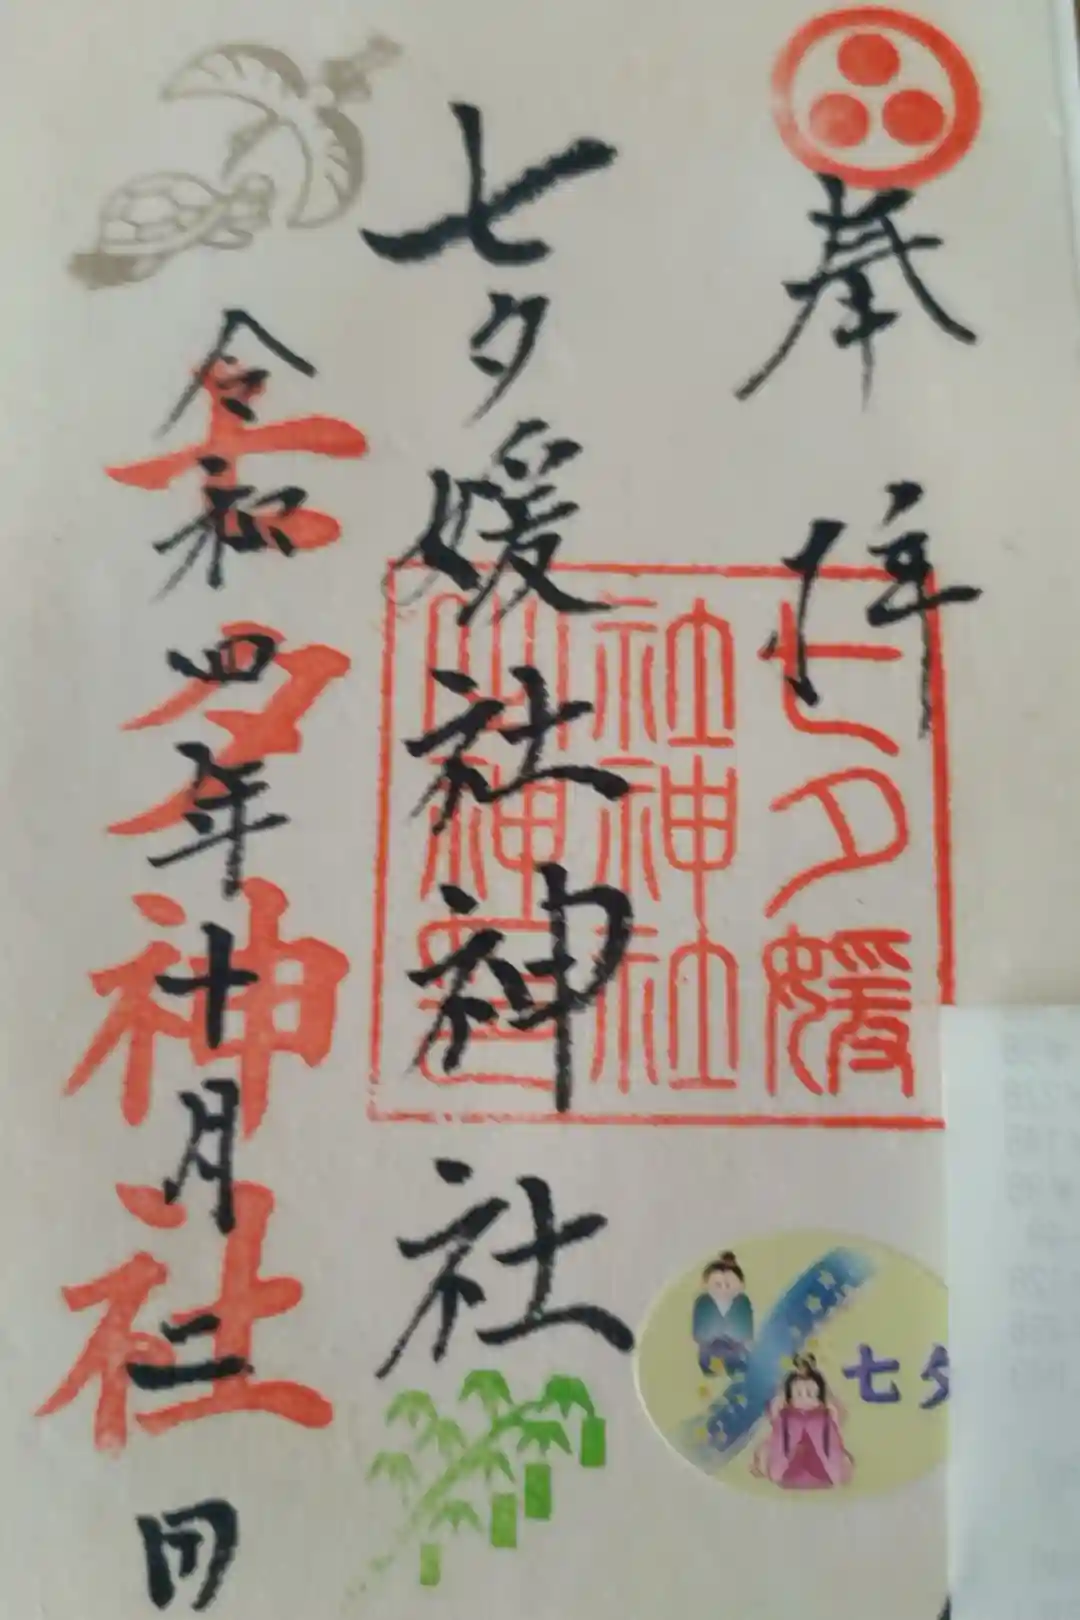 奉拝
七夕媛
社神社
七夕媛社神社
七夕神社
令和四年十月二日
七夕